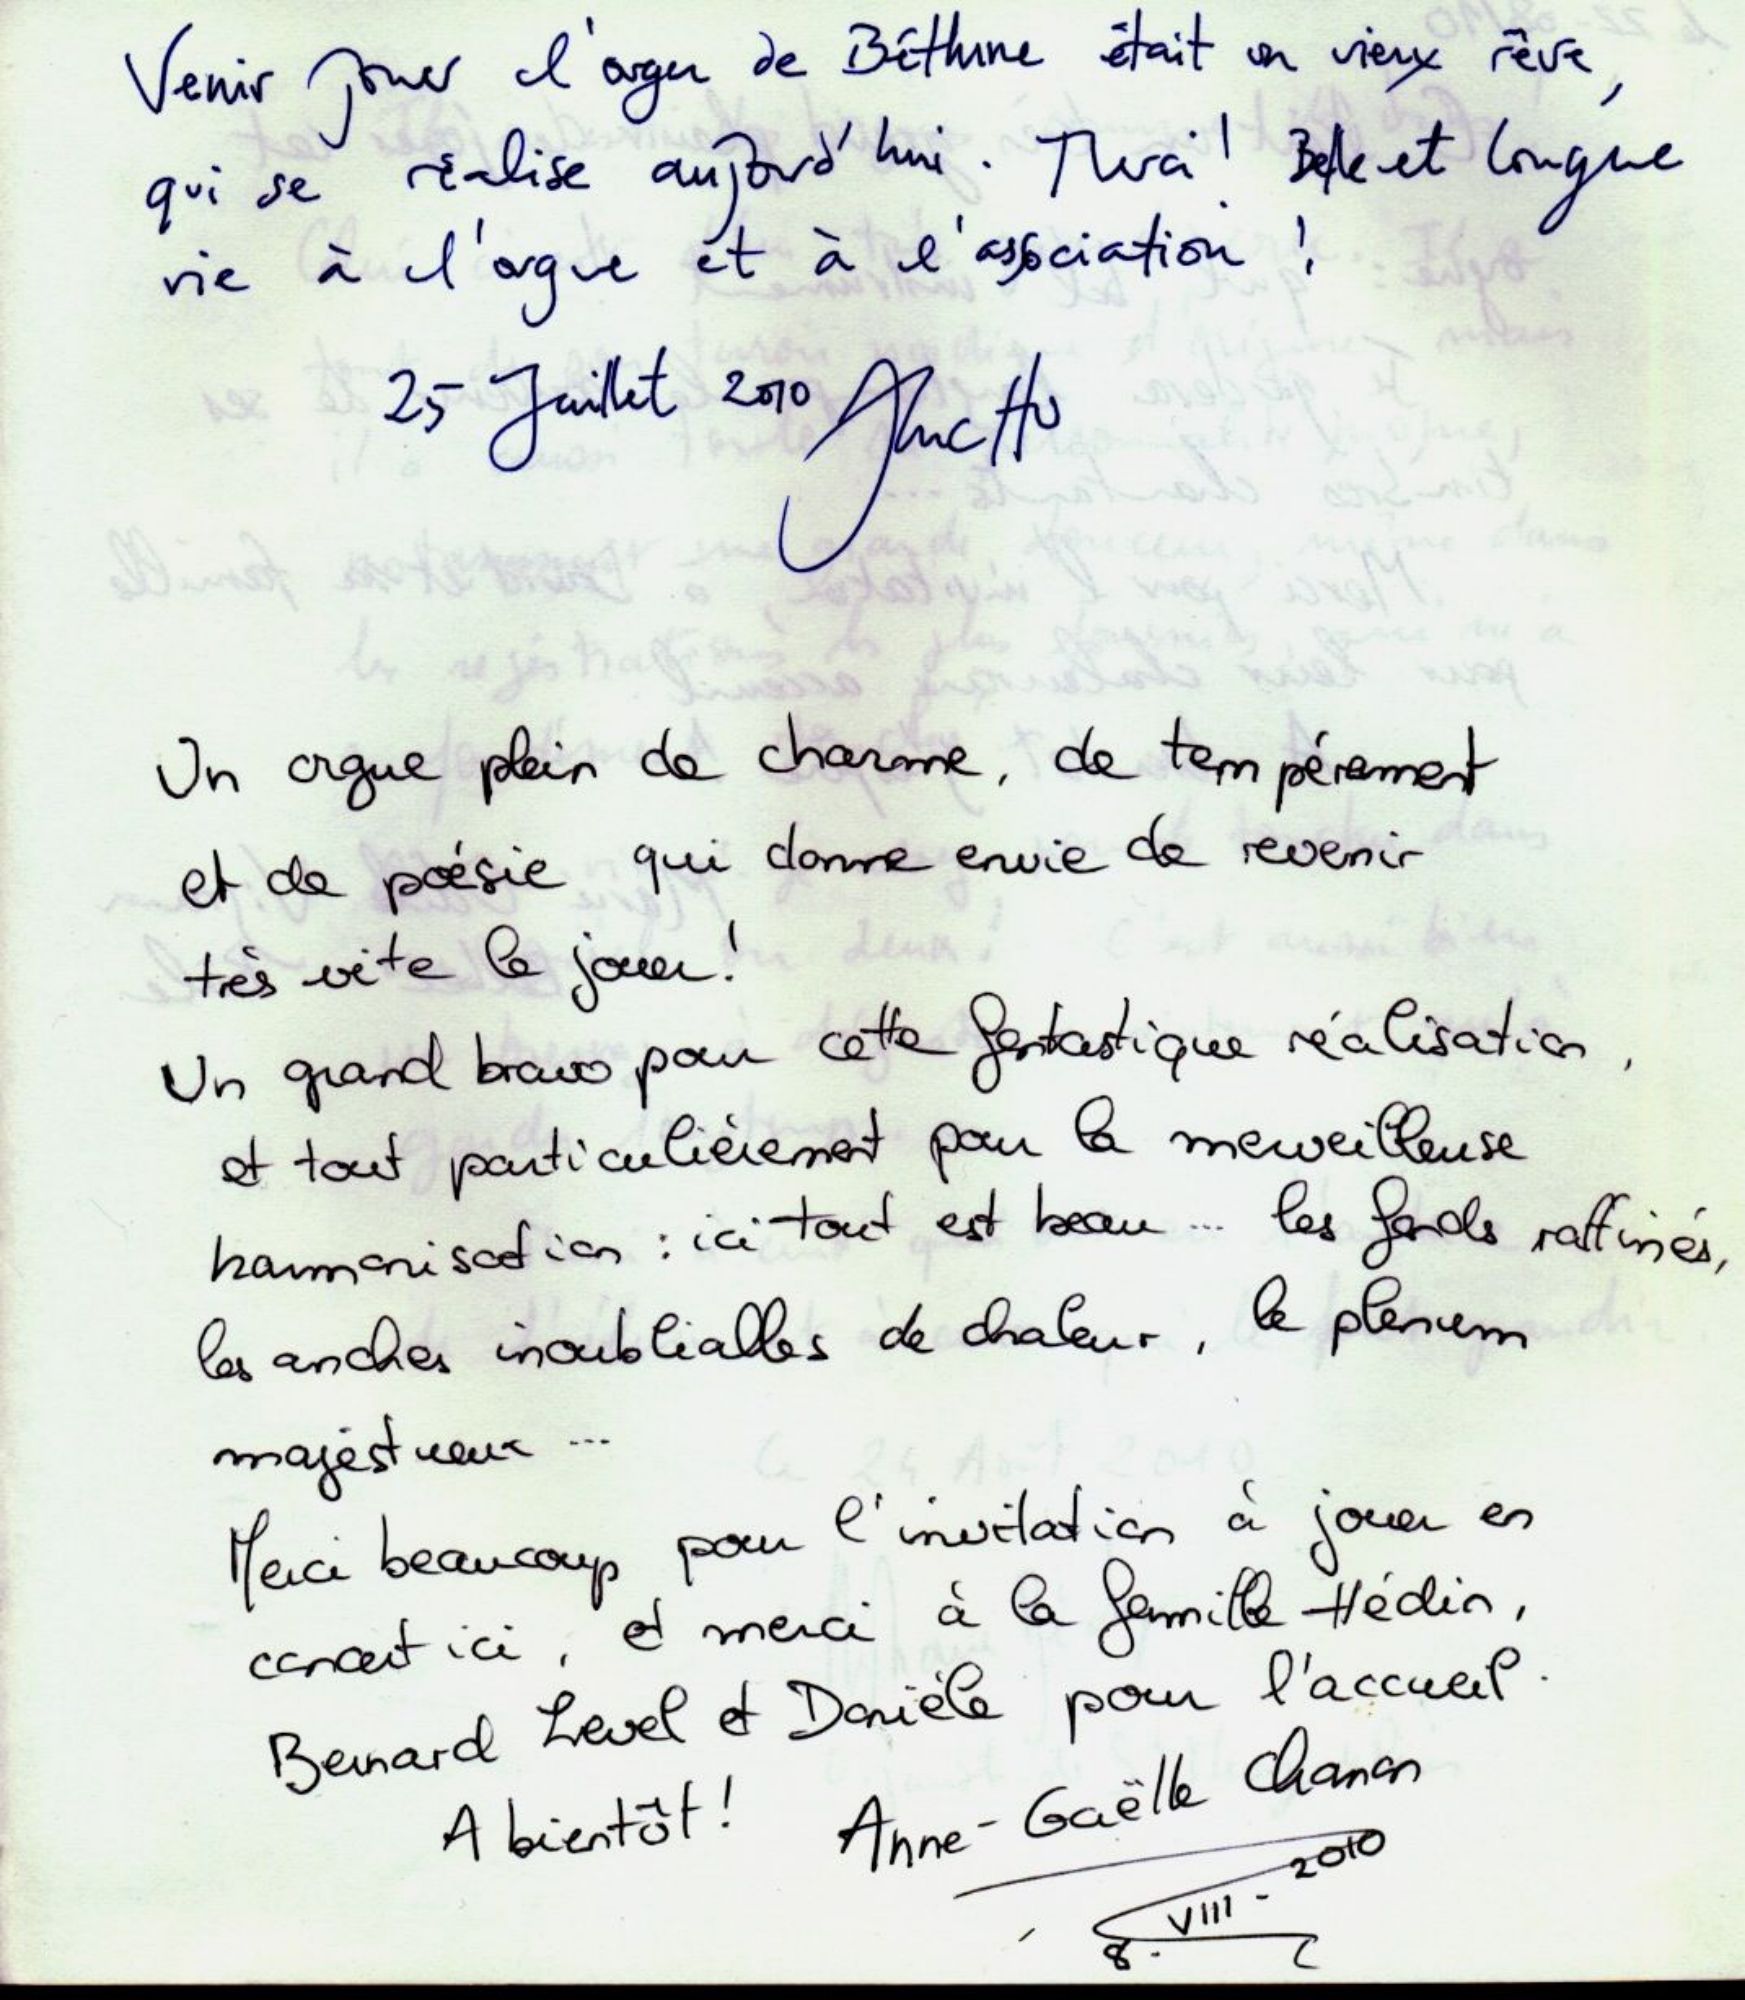 Venir jouer l'orgue de Béthune était un vieux rêve,
qui se réalise aujourd'hui. Merci! Belle et longue
vie à l'orgue et à l'association!
25 Juillet 2010
Un orgue plein de charme, de tempérament
et de poésie qui donne envie de revenir
très vite le jouer!
Un grand bravo pour cette fantastique réalisation,
et tout particulièrement pour la merveilleuse
harmonisation : ici tout est beau ... les fonds raffinés,
les anches inoubliables de chaleur, le plenum
majestueux ...
Merci beaucoup pour l'invitation à jouer en
concert ici, et merci à la famille Hédin,
Bernard Level et Danièle pour l'accueil.
A bientôt! Anne-Gaëlle Chanon
8. VIII - 2010